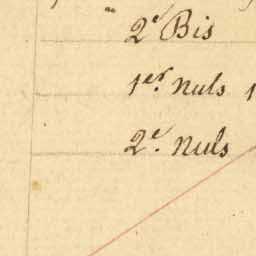 2e Bis
1er. nuls 1
2e. nuls